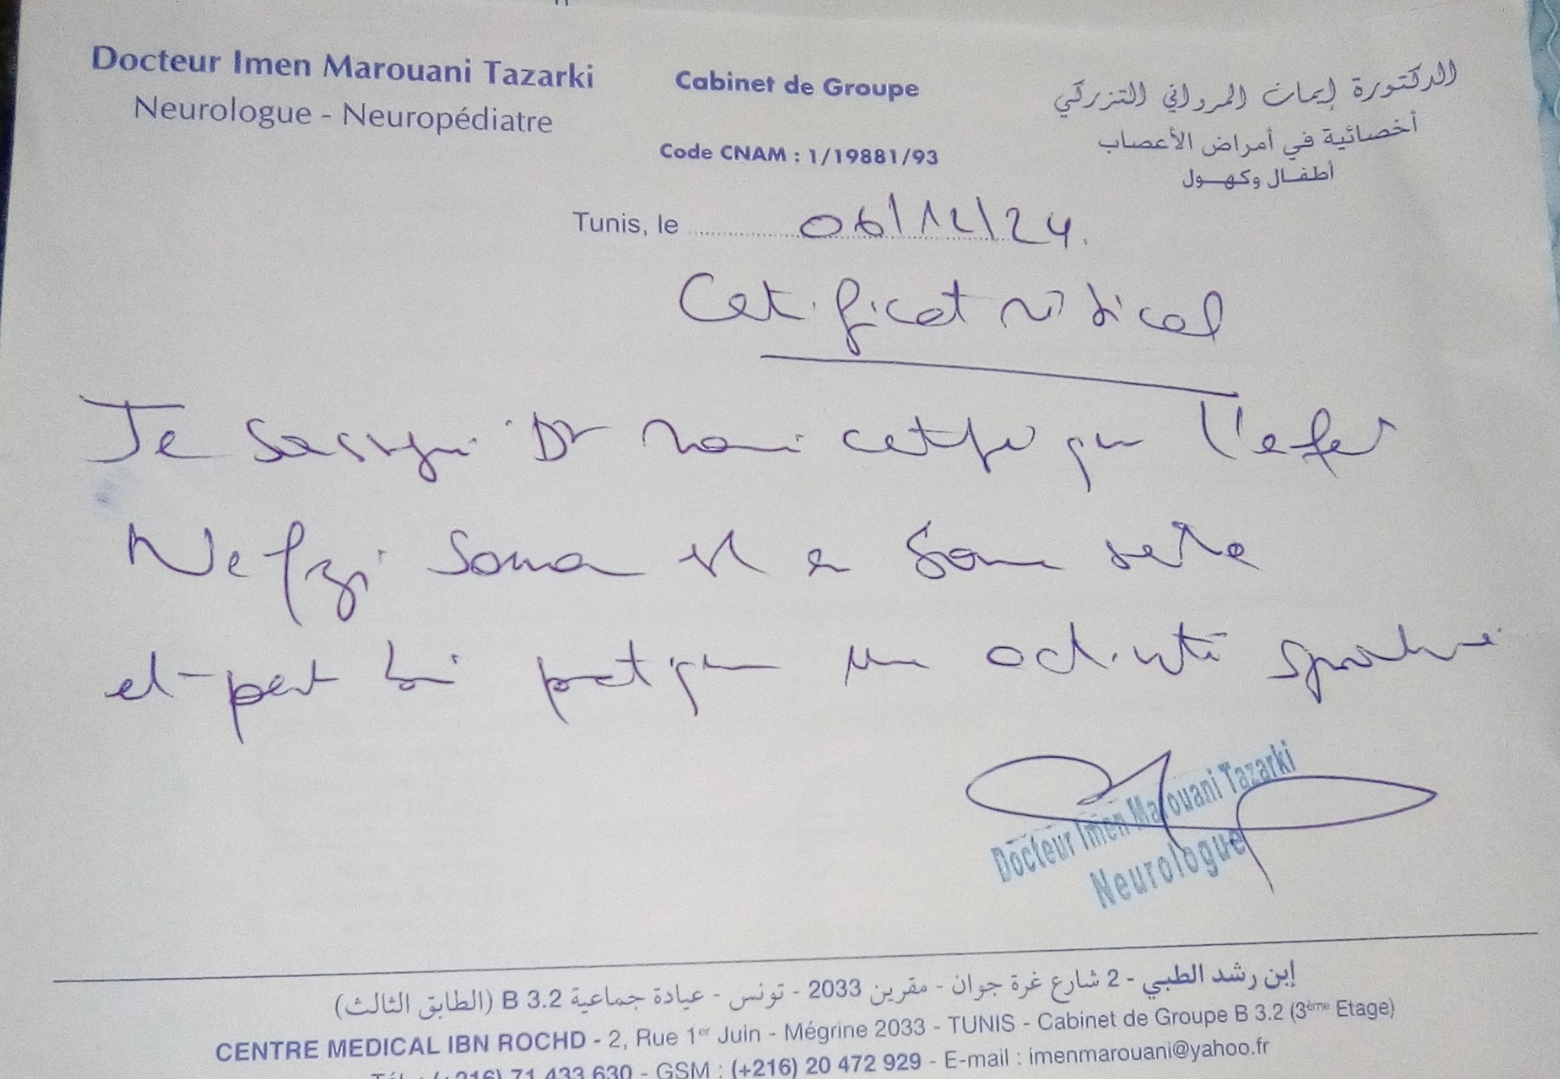 Docteur Imen Marouani Tazarki
Neurologue - Neuropédiatre
Cabinet de Groupe
Code CNAM : 1/19881/93
الدكتورة إيمان المرواني التزركي
أخصائية في أمراض الأعصاب
أطفال وكهول
Tunis, le 06/12/24.
Certificat médical
Je soussigné Dr certifie que l'enfant
Nefzi est en bonne santé
et peut bien pratiquer une activité sportive
Docteur Imen Marouani Tazarki
Neurologue
إبن رشد الطبي - 2 شارع غرة جوان - مقرين 2033 - تونس - عيادة جماعية B 3.2 (الطابق الثالث)
CENTRE MEDICAL IBN ROCHD - 2, Rue 1er Juin - Mégrine 2033 - TUNIS - Cabinet de Groupe B 3.2 (3ème Etage)
Tél : (+216) 71 433 630 - GSM : (+216) 20 472 929 - E-mail : imenmarouani@yahoo.fr